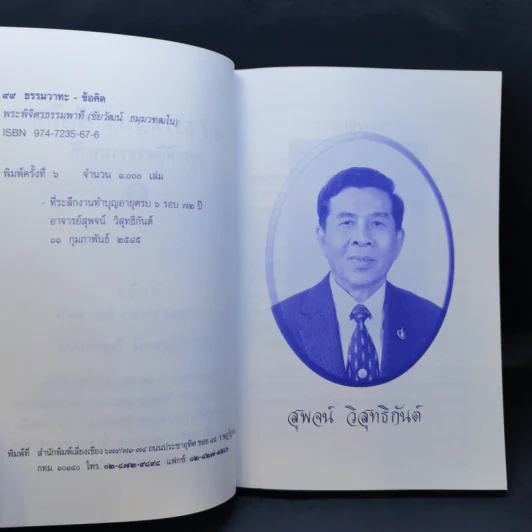 ๙๙ ธรรมวาทะ - ข้อคิด
พระพิจิตรธรรมพาที (ชัยวัฒน์ ธมฺมวฑฺฒโน)
ISBN 974-7235-67-6
พิมพ์ครั้งที่ ๖ จำนวน ๑,๐๐๐ เล่ม
- ที่ระลึกงานทำบุญอายุครบ ๖ รอบ ๗๒ ปี
อาจารย์สุพจน์ วิสุทธิกันต์
๑๑ กุมภาพันธ์ ๒๕๔๕
พิมพ์ที่ สำนักพิมพ์เลี่ยงเชียง ถนนประชาอุทิศ ซอย
กทม. ๑๐๑๔๐ โทร. ๐๒-๔๗๒-๙๔๙๔ แฟกซ์.
สุพจน์ วิสุทธิกันต์